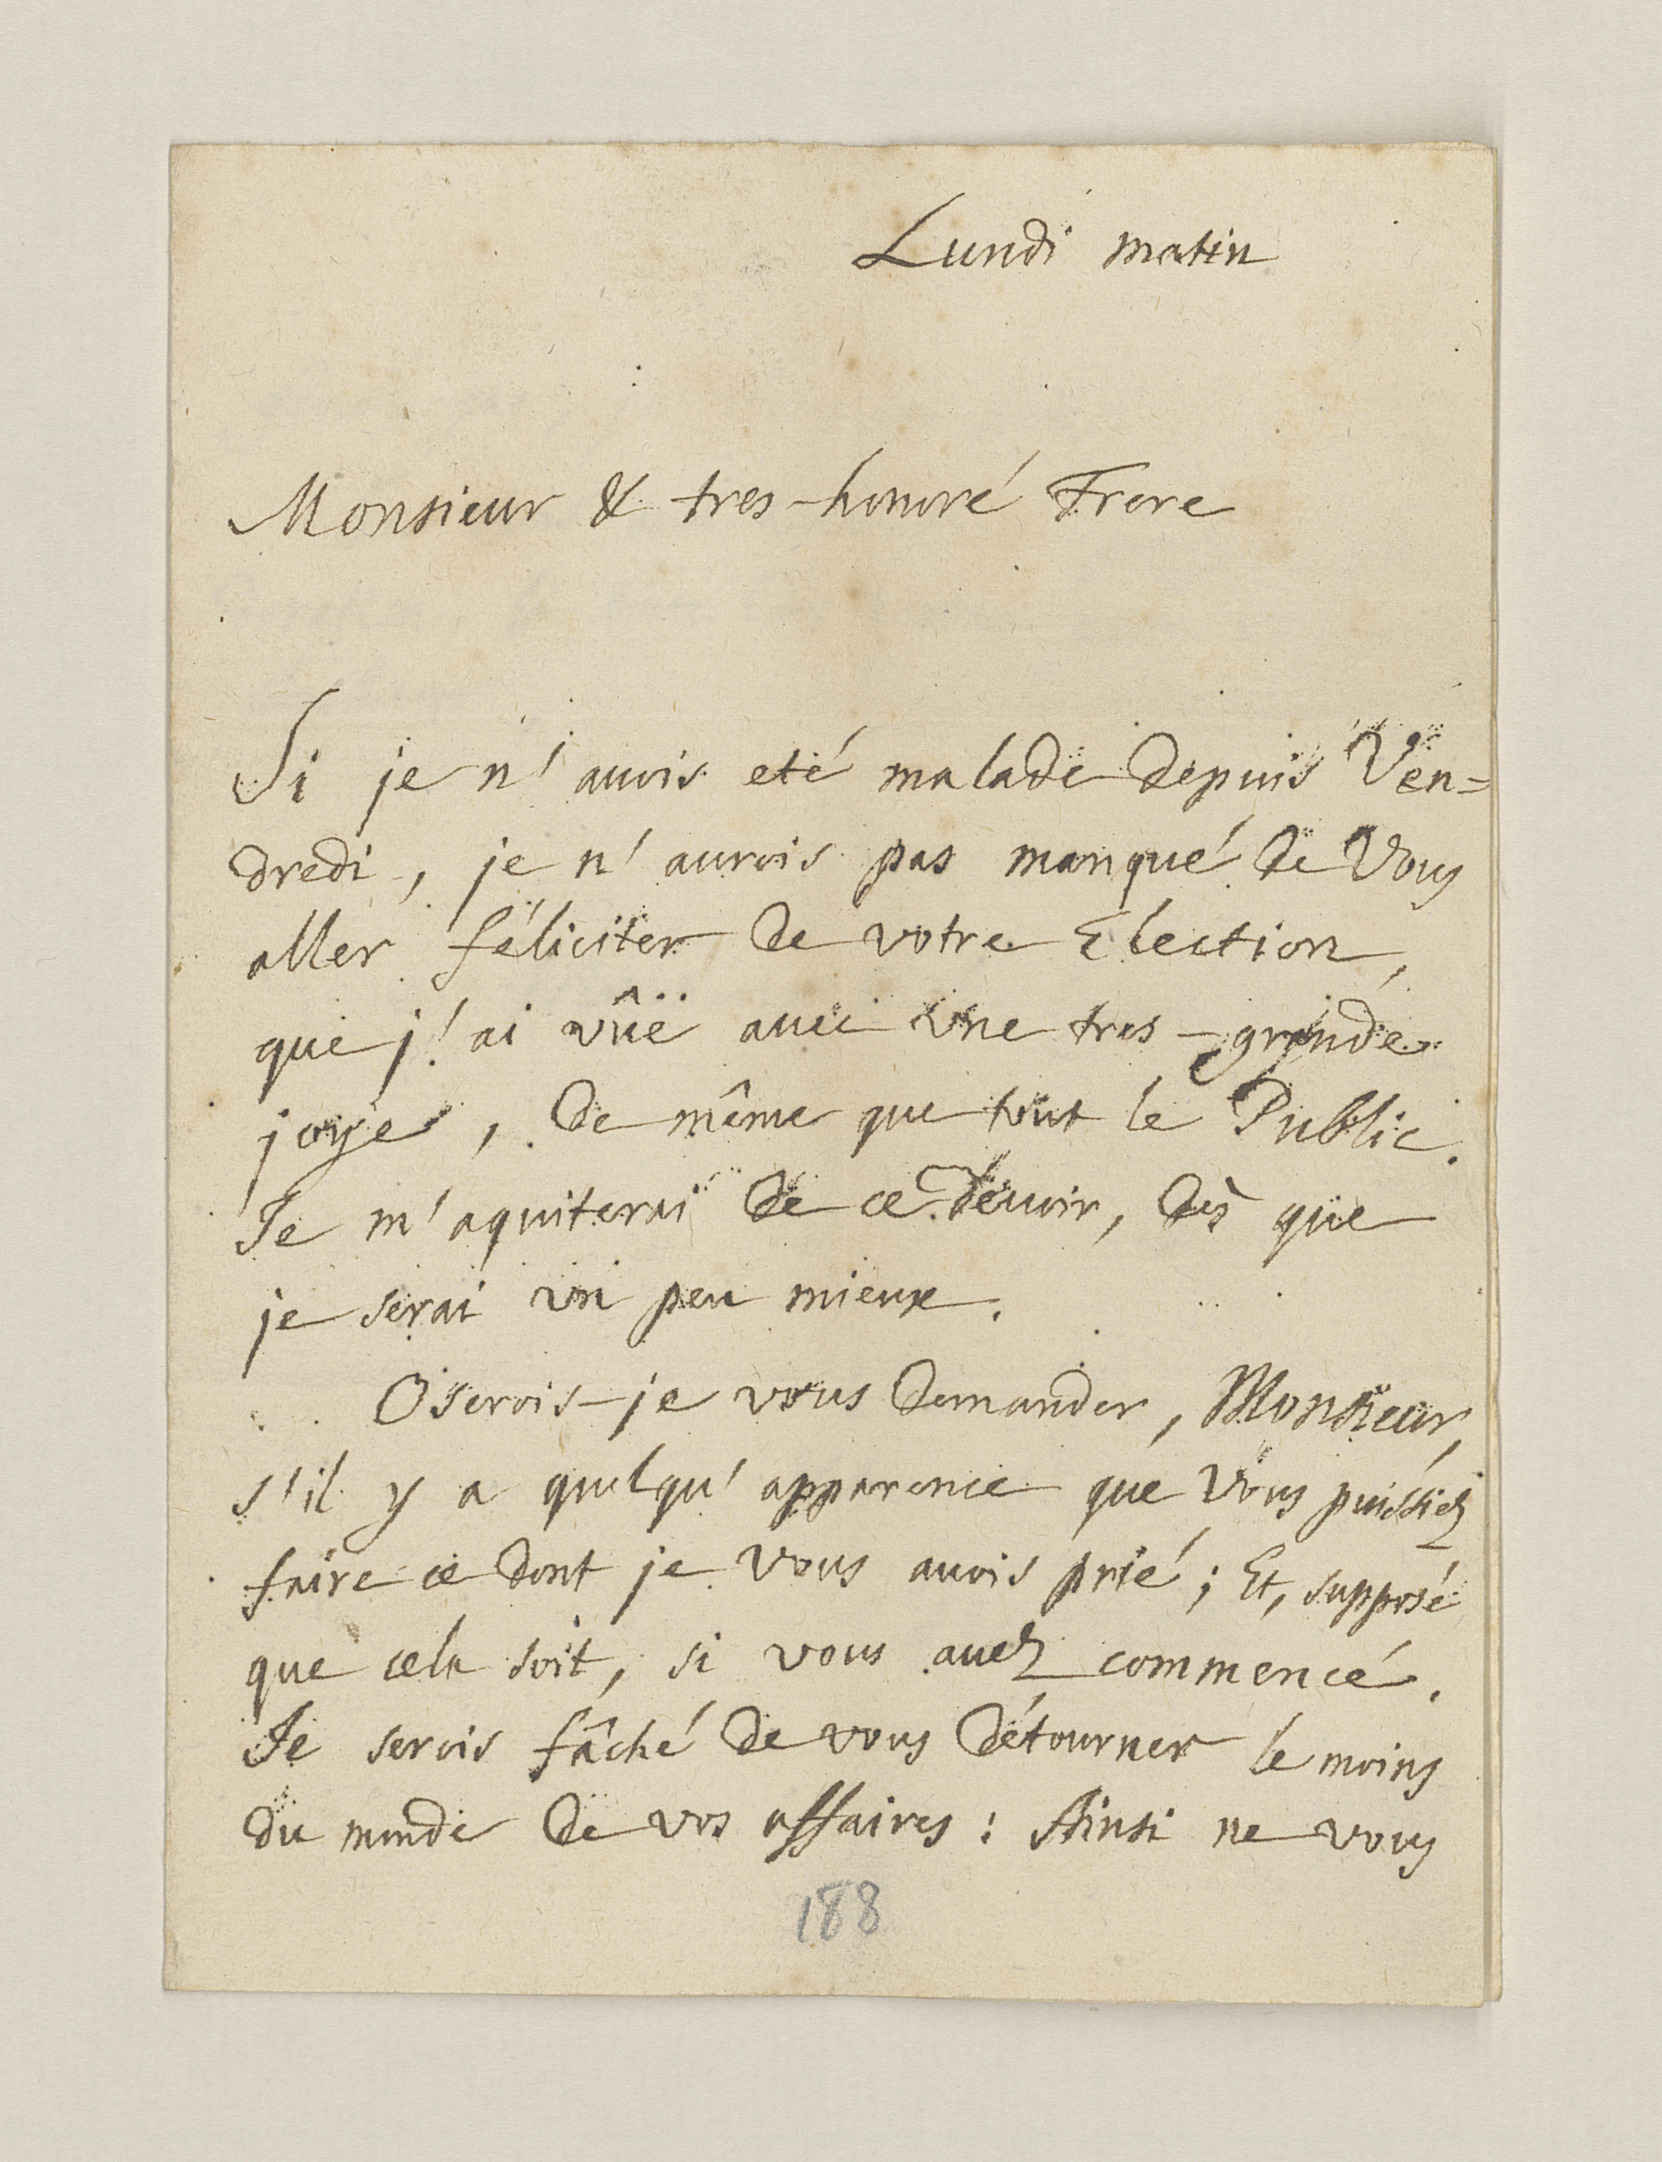 Lundi matin
Monsieur & tres-honoré Frere
Si je n'avois eté malade depuis Ven=
dredi, je n'aurois pas manqué de Vous
aller féliciter de votre Election,
que j'ai vûë avec vne tres-grande
joye, de même que tout le Public.
Je m'aquiterai de ce devoir, dès que
je serai vn peu mieux.
Oserois-je vous demander, Monsieur,
s'il y a quelqu'apparence que Vous puissiez
faire ce dont je vous avois prié; Et, supposé
que cela soit, si vous avez commencé.
Je serois fâché de vous détourner le moins
du monde de vos affaires: Ainsi ne vous
188